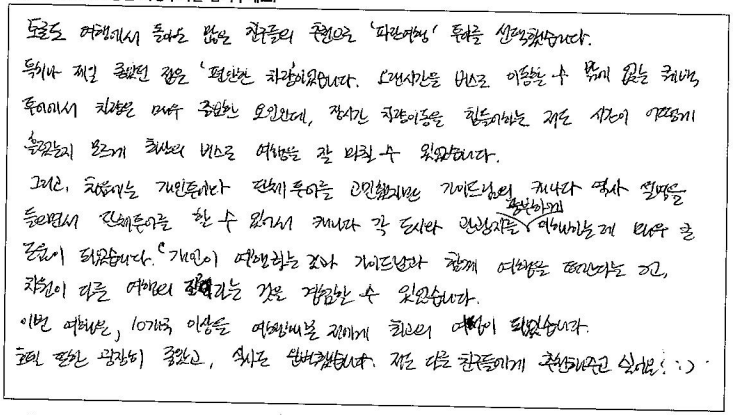 토론토 여행에서 돌아온 많은 친구들의 추천으로 '파란여행' 투어를 선택했습니다.
특히나 제일 좋았던 점은 '편안한 차량'이었습니다. 오랜시간을 버스로 이동할 수 밖에 없는 퀘벡
투어에서 차량은 매우 중요한 요인인데, 장시간 차량이동을 힘들어하는 저도 시간이 어떻게
흘렀는지 모르게 최상의 버스로 여행을 잘 마칠 수 있었습니다.
그리고, 처음에는 개인투어와 단체투어를 고민했지만 가이드님의 캐나다 역사 설명을
들으면서 단체투어를 할 수 있어서 캐나다 각 도시와 관광지를 풍부하게 이해하는데 매우 큰
도움이 되었습니다. 개인이 여행하는것과 가이드님과 함께 여행을 떠난다는 건,
차원이 다른 여행의 라는 것을 경험할 수 있었습니다.
이번 여행은, 10개국 이상을 여행해본 저에게 최고의 여행이 되었습니다.
호텔 또한 굉장히 좋았고, 식사도 완벽했습니다. 저도 다른 친구들에게 추천해주고 싶어요! :)